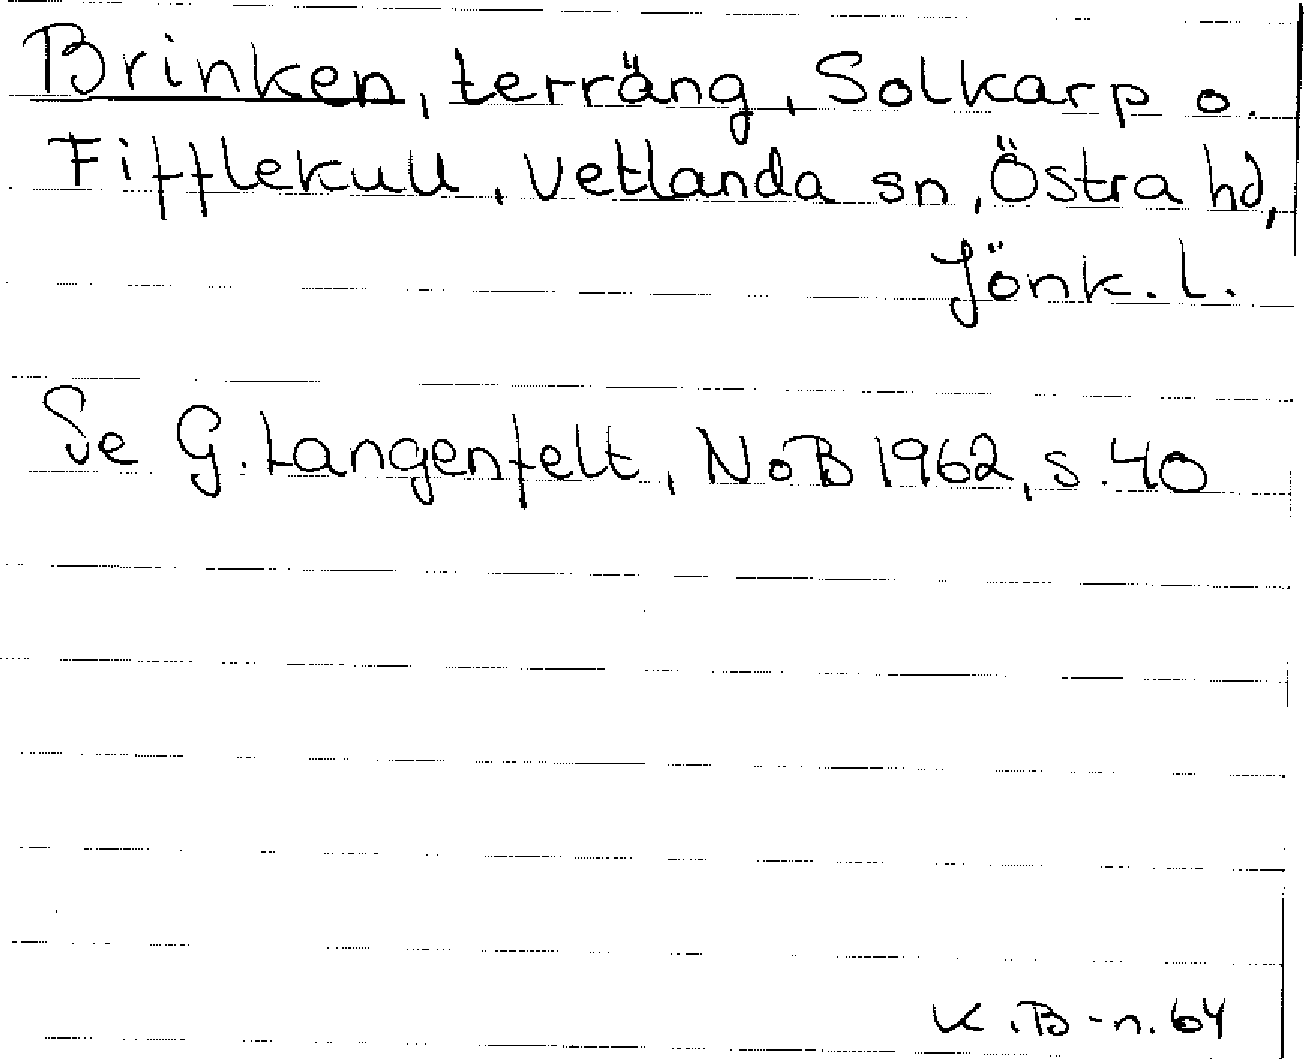 Brinken, terräng, Solkarp o.
Fifflekull, Vetlanda sn, Östra hd,
Jönk. l.
Se G. Langenfelt, NoB 1962, s. 40
K.B-n. 64